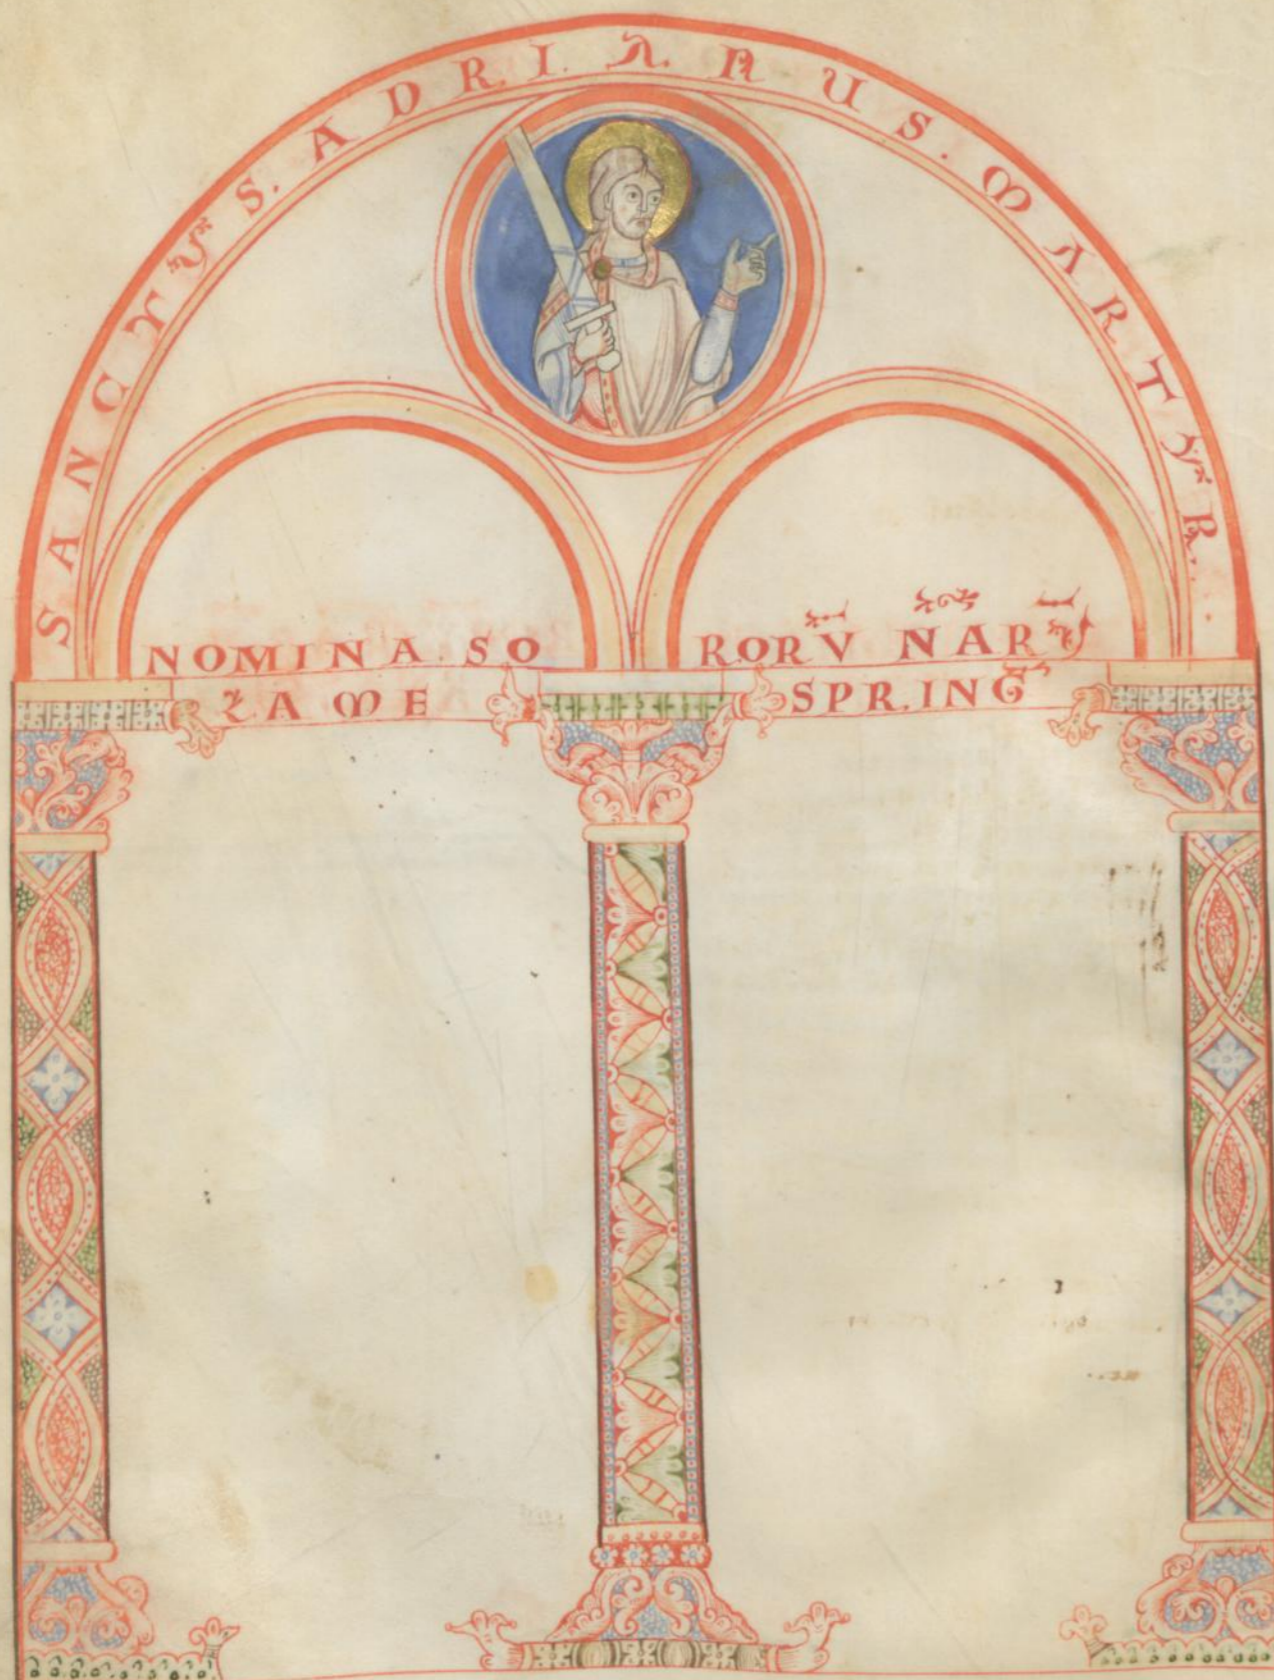 SANCTUS. ADRIANUS. MARTYR.
NOMINA. SORORV̄ N̄AR̄
SPRING̅